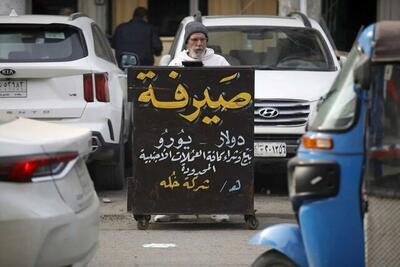 صيرفة
دولار - يورو
بيع وشراء كافة العملات الاجنبية
المحدودة
شركة خله
KIA